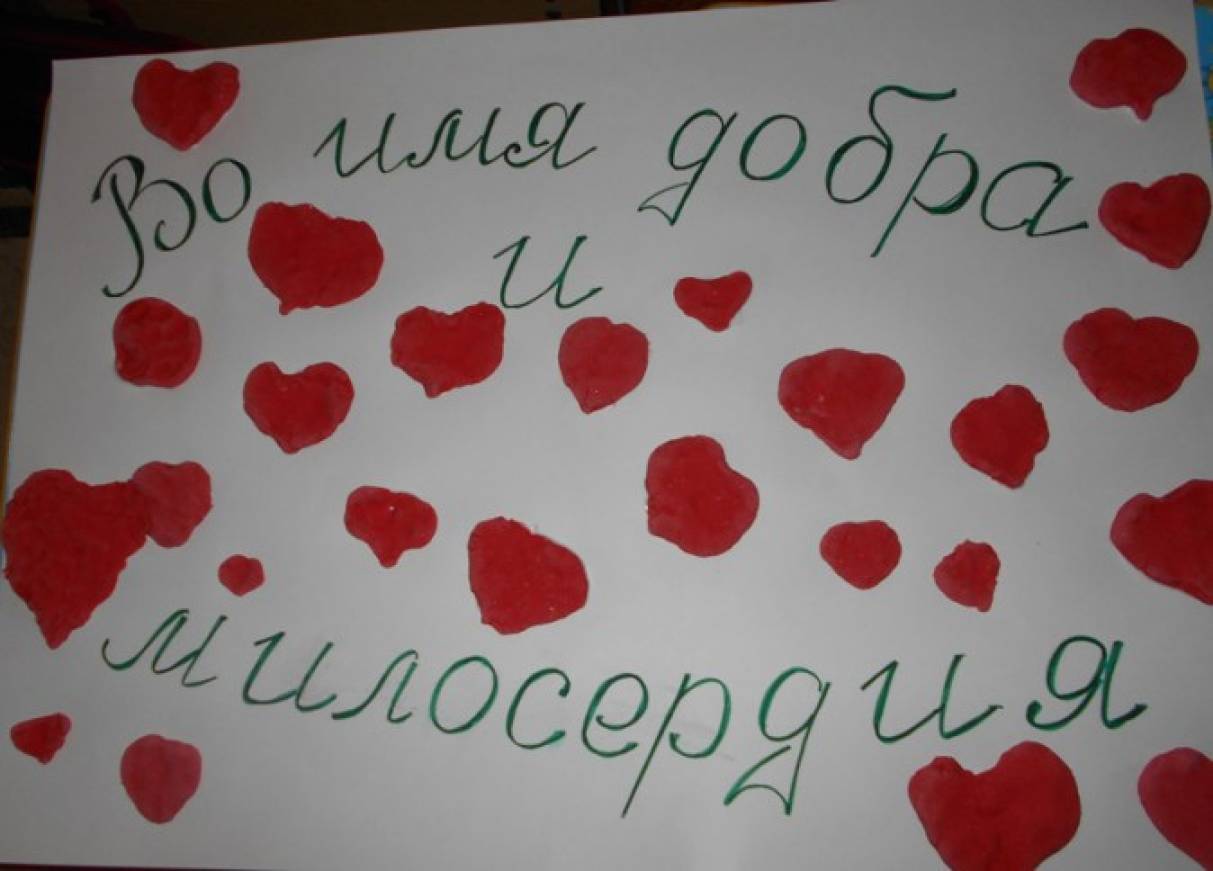 Во имя добра
и
милосердия